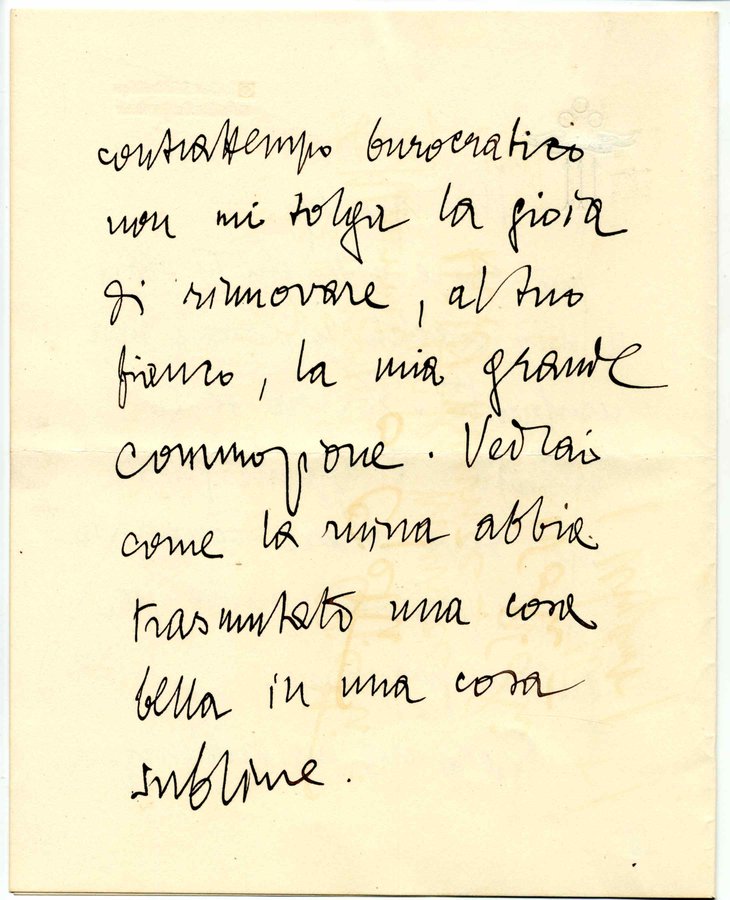 contrattempo burocratico
non mi tolga la gioia
di rinnovare, al tuo
fianco, la mia grande
commozione. Vedrai
come la ruina abbia
trasmutato una cosa
bella in una cosa
sublime.